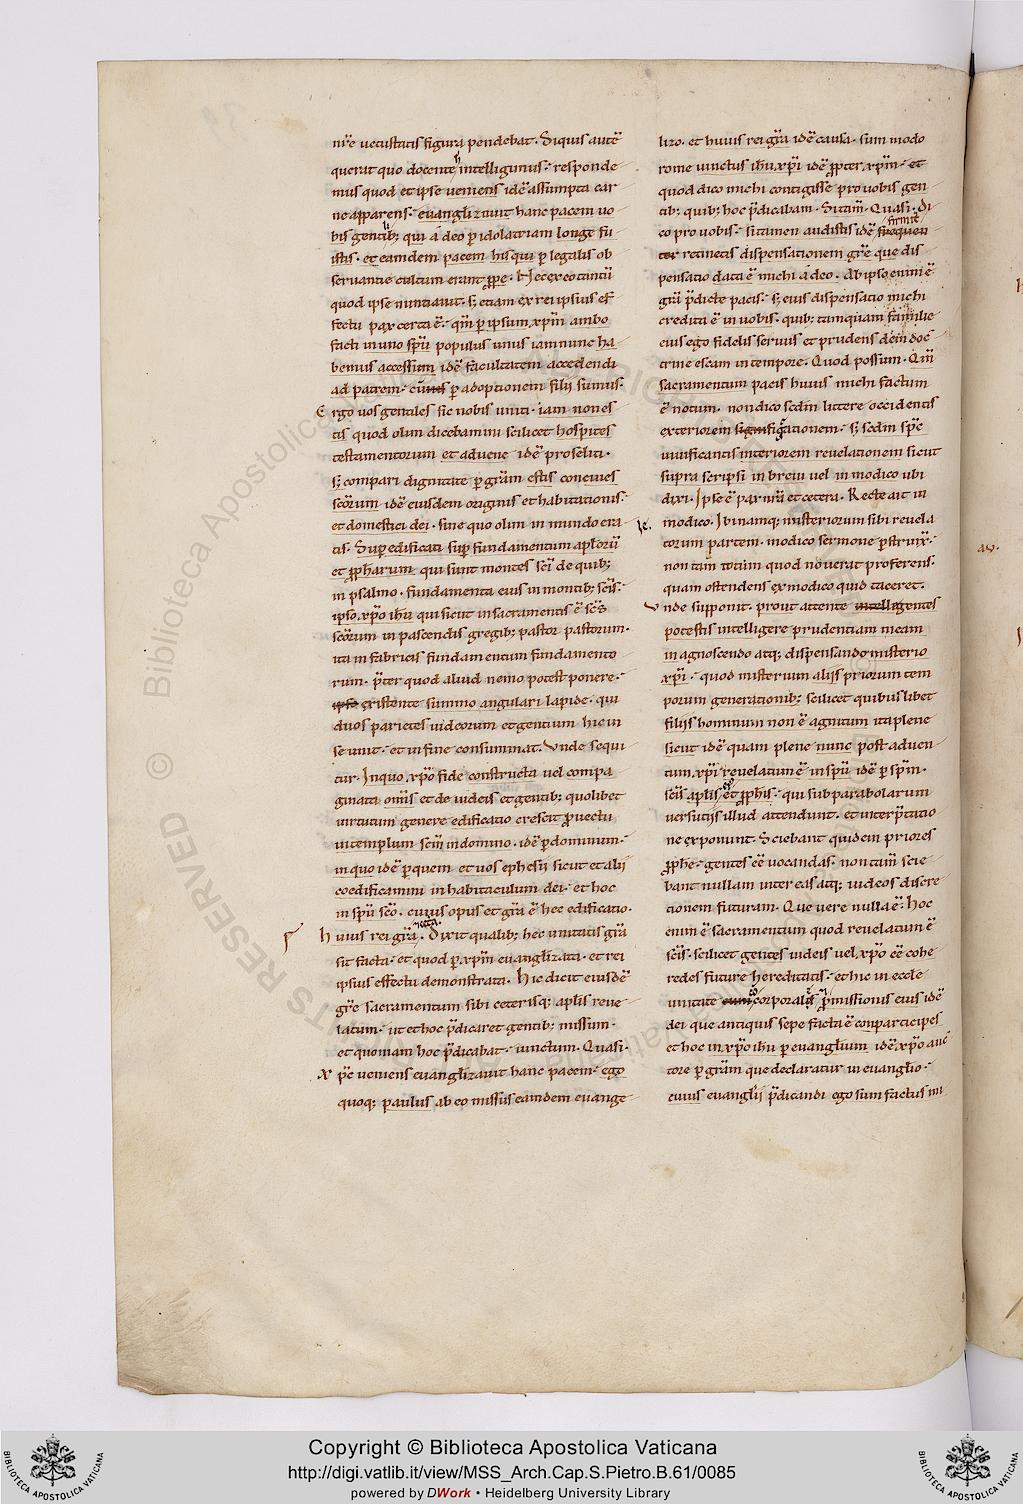 nr̄e uetustatis figura pendebat. Siquis autē
querat quo docente intelligimus. responde
mus quod et ipse ueniens idē assumpta car
ne apparens. euanglizauit hanc pacem uo
bis gentib; qui a deo p idolatriam longe fu
istis. et eamdem pacem his qui p legalis ob
seruantie cultum erant ꝓpe. Nec ex eo tantū
quod ipse nuntiauit. s; etiam ex rei ipsius ef
fectu pax certa ē. qm̄ p ipsum xp̄m ambo
facti in uno sp̄u populus unus iam nunc ha
bemus accessum idē facultatem accedendi
ad patrem. p adoptionem filij sumus.
Ergo uos gentiles sic nobis uniti. iam non es
tis quod olim dicebamini scilicet hospites
testamentorum et aduene idē proseliti.
s; compari dignitate p grām estis conciues
scōrum idē eiusdem originis et habitationis.
et domestici dei. sine quo olim in mundo era
tis. Superedificati sup fundamentum aplorū
et ꝓpharum. qui sunt montes scī de quib;
in psalmo. fundamenta eius in montib; scīs.
ipso xp̄o ihū qui sicut in sacramentis ē scs̄
scōrum in pascendis gregib; pastor pastorum.
ita in fabricis fundamentum fundamento
rum. p̄ter quod aliud nemo potest ponere.
existente summo angulari lapide. qui
duos parietes iudeorum et gentium hic in
se unit. et in fine consummat. Vnde sequi
tur. In quo xp̄o fide constructa uel compa
ginata om̄is et de iudeis et gentib; quolibet
uirtutum genere edificatio crescit ꝓuectu
in templum scm̄ in domino. idē p dominum.
in quo idē p quem et uos ephesii sicut et alii
coedificamini in habitaculum dei. et hoc
in sp̄u scō. cuius opus et grā ē hec edificatio.
Huius rei grā. Dixit qualib; hec unitatis grā
sit facta. et quod p xp̄m euanglizata. et rei
ipsius effectu demonstrata. Hic dicit eiusdē
gr̄e sacramentum sibi ceterisq; aplis reue
latum. ut et hoc p̄dicaret gentib; missum.
et quoniam hoc p̄dicabat. uinctum. Quasi.
xp̄c ueniens euanglizauit hanc pacem. ego
quoq; paulus ab eo missus eamdem euange
lizo. et huius rei grā idē causa. sum modo
rome uinctus ihū xp̄i idē ꝓpter xp̄m. et
quod dico michi contigisse pro uobis gen
tib; quib; hoc p̄dicabam. Si tam̄. Quasi. Di
co pro uobis. si tamen audistis idē firmit
retinetis dispensationem gr̄e que dis
pensatio data ē michi a deo. Ab ipso enim ē
grā p̄dicte pacis. s; eius dispensatio michi
credita ē in uobis. quib; tamquam familie
eius ego fidelis seruus et prudens dem doc
trine escam in tempore. Quod possum. Qm̄
sacramentum pacis huius michi factum
ē notum. non dico scdm littere occidentis
exteriorem significationem. s; scdm sp̄c
uiuificantis interiorem reuelationem sicut
supra scripsi in breui uel in modico ubi
dixi. Ipse ē pax nrā et cetera. Recte ait in
modico. Ibi namq; misteriorum sibi reuela
torum partem. modico sermone pstrinx̄.
non tam totum quod nouerat proferens.
quam ostendens ex modico quid taceret.
Vnde supponit. prout attente intelligentes
potestis intelligere prudentiam meam
in agnoscendo atq; dispensando misterio
xp̄i. quod misterium alijs priorum tem
porum generationib; scilicet quibuslibet
filijs hominum non ē agnitum ita plene
sicut idē quam plene nunc post aduen
tum xp̄i reuelatum ē in sp̄u idē p sp̄m.
scīs aplis et ꝓphis. qui sub parabolarum
uersutijs illud attendunt. et interp̄tatio
ne exponunt. Sciebant quidem priores
ꝓphe. gentes cē uocandas. non tam̄ scie
bant nullam inter eas atq; iudeos discre
tionem futuram. Que uere nulla ē. Hoc
enim ē sacramentum quod reuelatum ē
scīs. scilicet gentes iudeis uel xp̄o cē cohe
redes future hereditatis. et hic in eccle
unitate corporales p̄missionis eius idē
dei que antiquis sepe facta ē comparticipes
et hoc in xp̄o ihū p euanglium idē xp̄o auc
tore p grām que declaratur in euanglio.
cuius euanglij p̄dicandi ego sum factus mi
Copyright © Biblioteca Apostolica Vaticana
http://digi.vatlib.it/view/MSS_Arch.Cap.S.Pietro.B.61/0085
powered by DWork • Heidelberg University Library